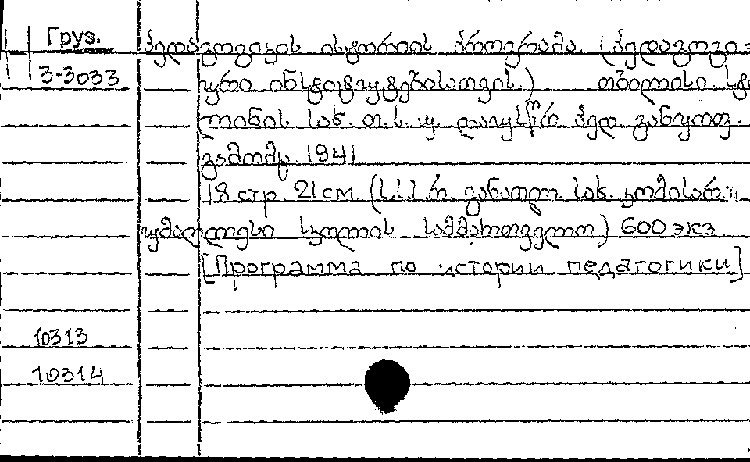 Груз.
3-3033
პედაგოგიკის ისტორიის პროგრამა. (პედაგოგი-
ური ინსტიტუტებისათვის.) თბილისი. სტა
ლინის სახ. თ. ს. უ. დაუსწრ. პედ. განყოფ.
გამომც. 1941
18 стр. 21 см. (ს.ს.ს.რ. განათლ. სახ. კომისარ.
უმაღლესი სკოლის სამმართველო) 600 экз
[Программа по истории педагогики]
10313
10314